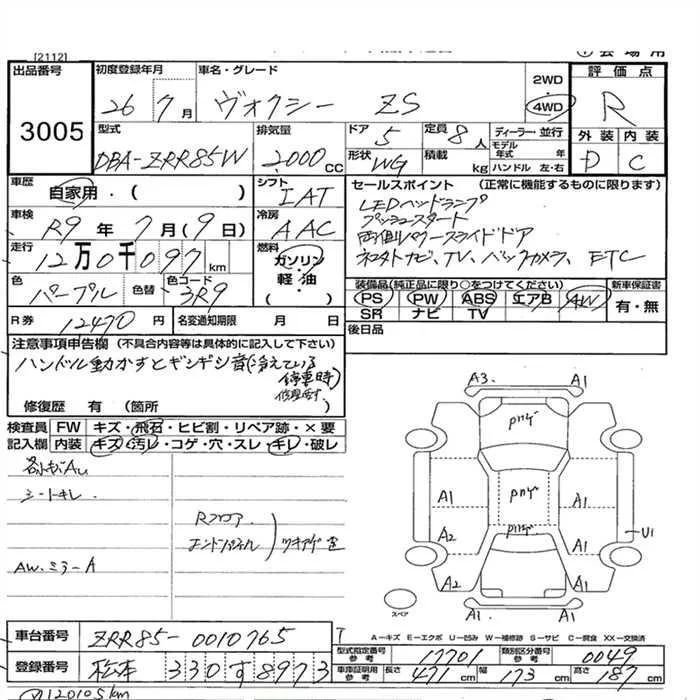 [2112]
出品番号 3005
初度登録年月 26年 7月
車名・グレード ヴォクシー ZS
2WD
4WD
評価点 R
型式 DBA-ZRR85W
排気量 2000 CC
ドア 5
定員 8人
ディーラー・並行
モデル年式 年
形状 WG
積載 kg
ハンドル 左・右
外装 D
内装 C
車歴 自家用・( )
シフト IAT
車検 R9年 7月(9日)
冷房 AAC
走行 12万0千097 km
燃料 ガソリン・軽油
色 パープル
色替
色コード 3R9
セールスポイント (正常に機能するものに限ります)
LEDヘッドランプ
プッシュスタート
両側パワースライドドア
ネオトナビ、TV、バックカメラ、ETC
装備品(純正品に限り○をつけてください)
PS PW ABS エアB AW
SR ナビ TV
新車保証書 有・無
R券 12470 円
名変通知期限 月 日
後日品
注意事項申告欄(不具合内容等は具体的に記入して下さい)
ハンドル動かすとギシギシ音(冷えている
停車時)
修復歴 有 (箇所 )
検査員記入欄
FW キズ・飛石・ヒビ割・リペア跡・×要
内装 キズ・汚レ・コゲ・穴・スレ・キレ・破レ
シートキレ
AW.ミラーA
Rフロア
エンドパネル
ツキアゲ
A3. A1
A1 A1
A2 A1 U1
A2 A1
A1. A1
スペア
A-キズ E-エクボ U-凹み W-補修跡 S-サビ C-腐食 XX-交換済
車台番号 ZRR85-0010765
登録番号 松本 330 す 8973
型式指定番号 参考 17701
類別区分番号 参考 0049
車庫証明用 参考 長さ 471 cm 幅 173 cm 高さ 187 cm
120105km